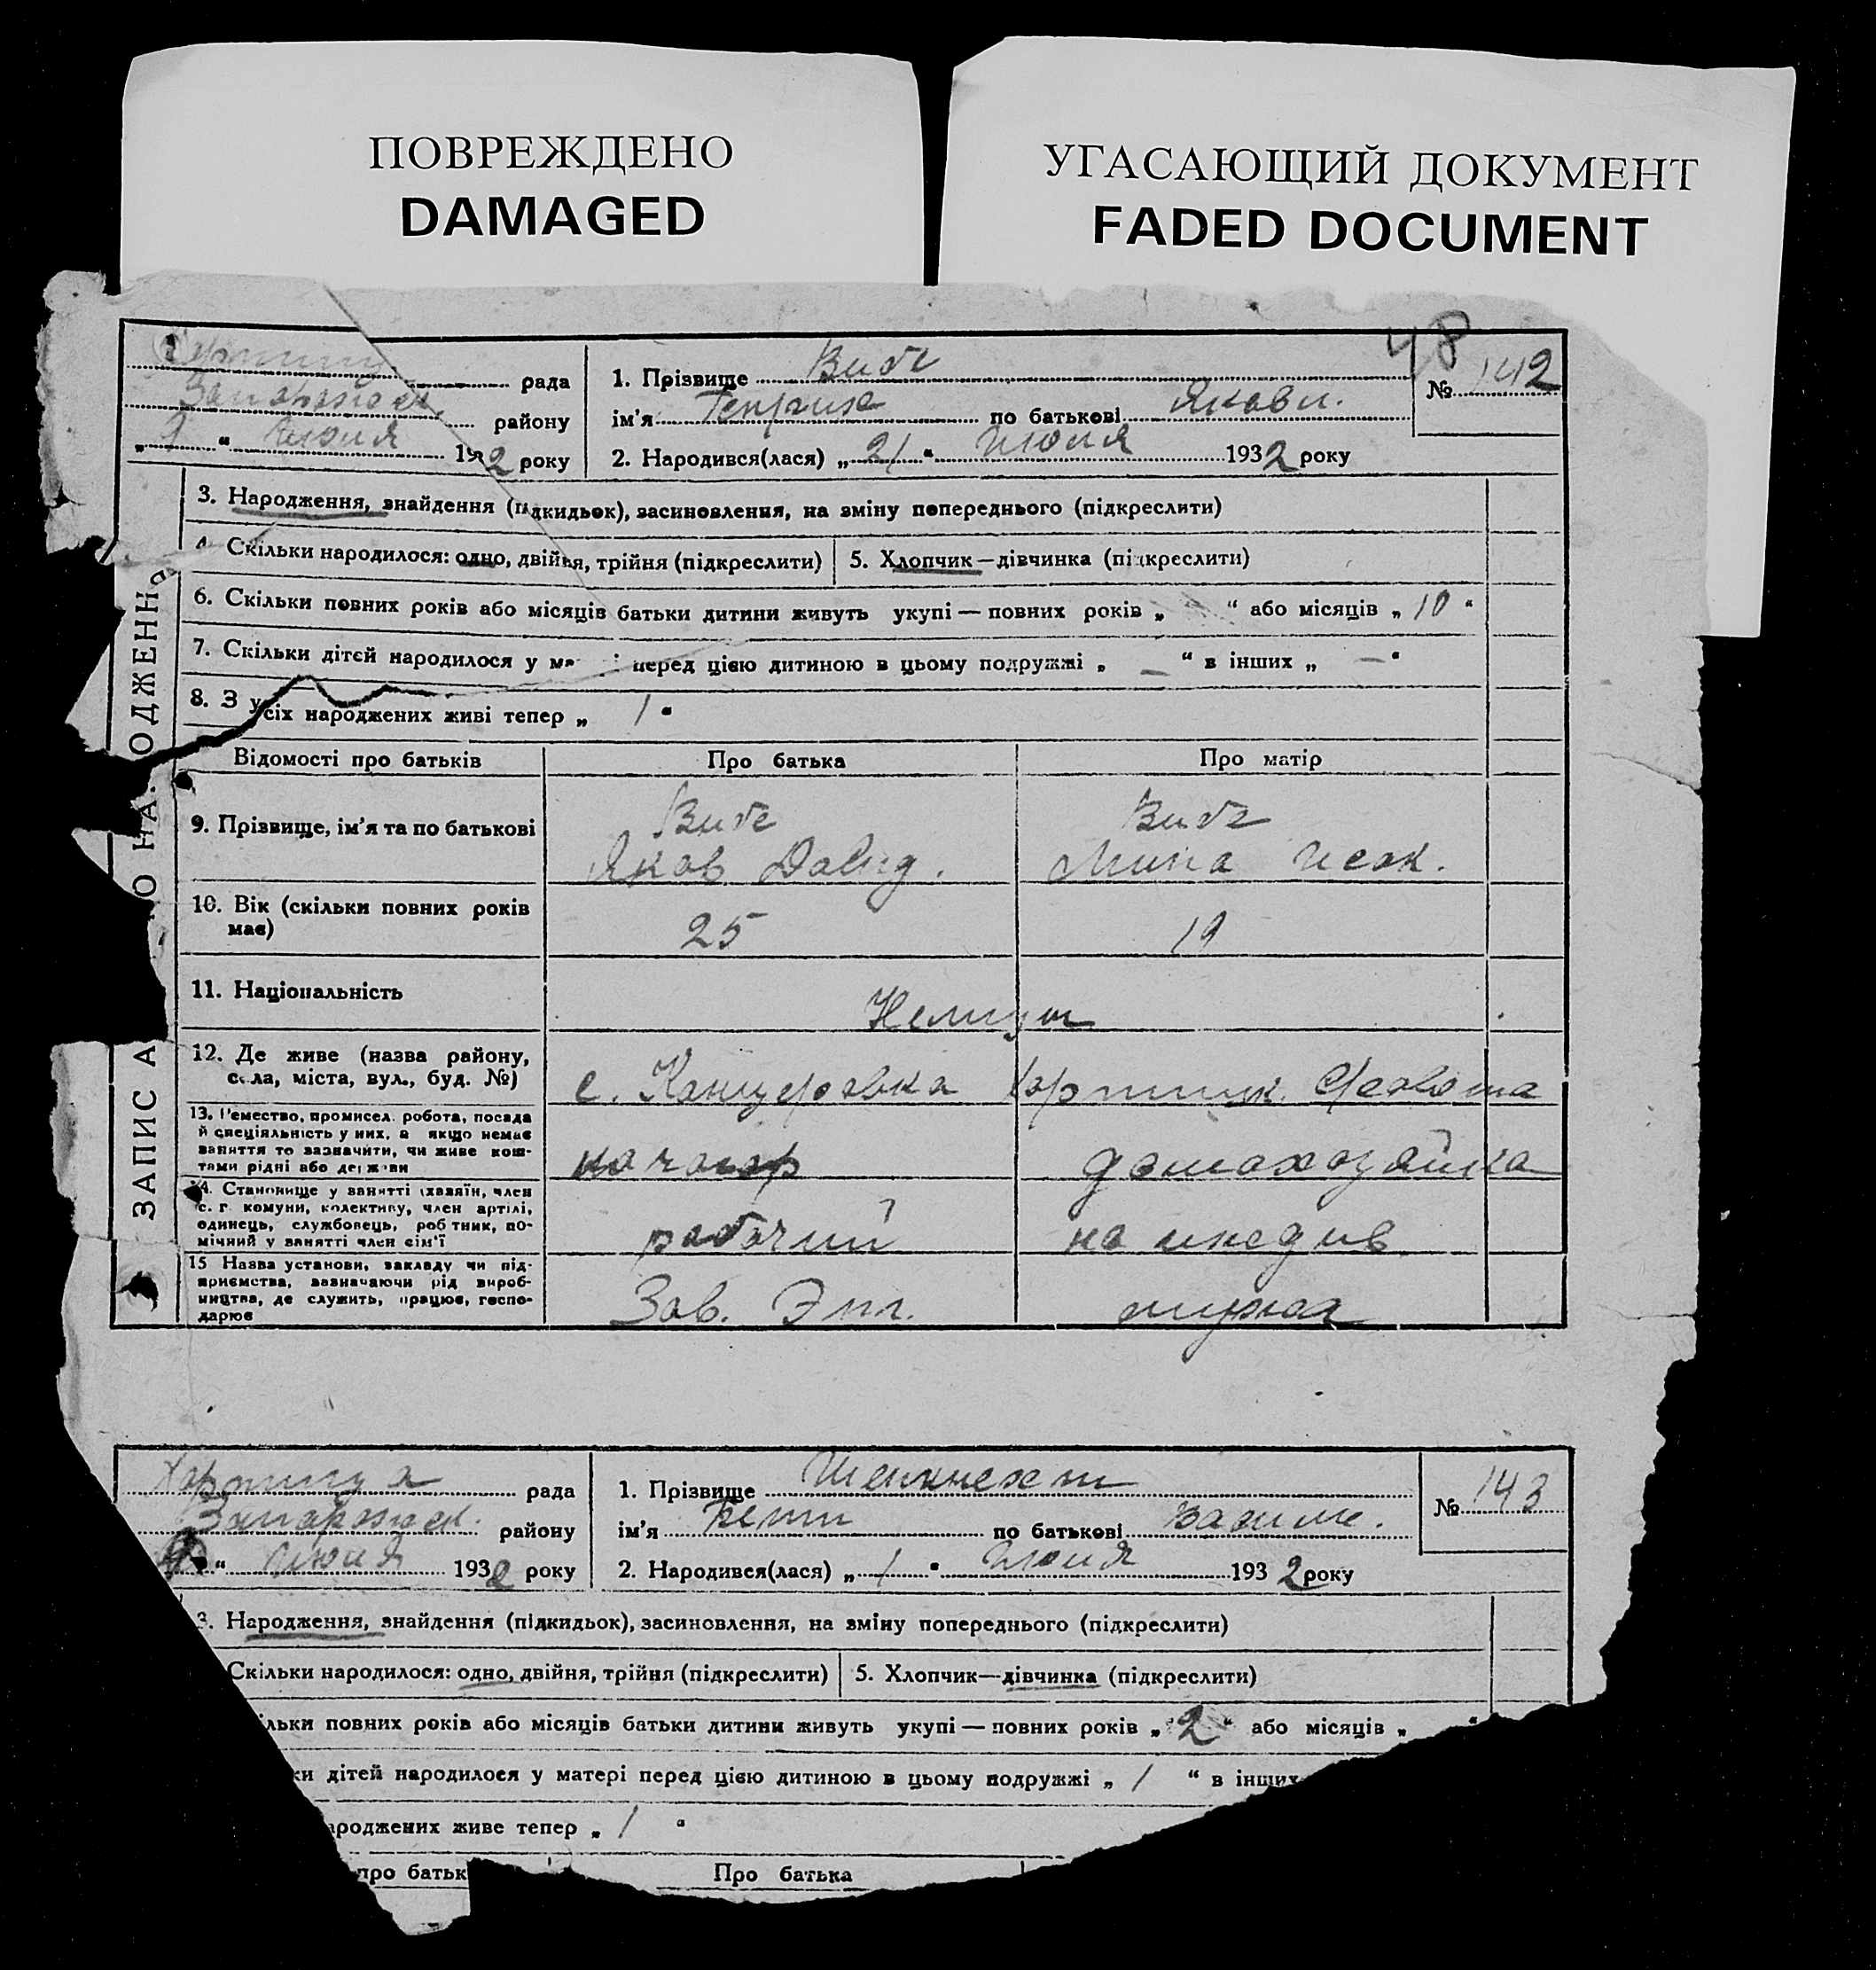 ПОВРЕЖДЕНО
DAMAGED
УГАСАЮЩИЙ ДОКУМЕНТ
FADED DOCUMENT
48
рада
району
„ 1 “ 192 року
1. Прізвище Вибе
ім'я Генрих по батькові Яковл.
2. Народився(лася) „ 21 “ Июля 1932 року
№ 142
3. Народження, знайдення (підкидьок), засиновлення, на зміну попереднього (підкреслити)
4. Скільки народилося: одно, двійня, трійня (підкреслити)
5. Хлопчик—дівчинка (підкреслити)
6. Скільки повних років або місяців батьки дитини живуть укупі — повних років „ “ або місяців „ 10 “
7. Скільки дітей народилося у ма і перед цією дитиною в цьому подружжі „ — “ в інших „ — “
8. З усіх народжених живі тепер „ 1 “
Відомості про батьків
Про батька
Про матір
9. Прізвище, ім'я та по батькові
Вибе
Яков Давид.
Вибе
Мина Исак.
10. Вік (скільки повних років має)
25
19
11. Національність
Немцы
12. Де живе (назва району, села, міста, вул., буд. №)
с. Канцеровка Хортицк.
13. Ремество, промисел, робота, посада
й спеціяльність у них, а якщо немає
заняття то зазначити, чи живе кош-
тами рідні або держави
домохозяйка
14. Становище у занятті (хазяїн, член
с. г. комуни, колективу, член артілі,
одинець, службовець, робітник, по-
мічний у занятті член сім'ї
рабочий
на иждив.
15 Назва установи, закладу чи під-
приємства, зазначаючи рід вироб-
ництва, де служить, працює, госпо-
дарює
Зав.
мужа
ЗАПИС А О НА ОДЖЕННЯ
Хортица рада
Запорожск. району
“ Июля 1932 року
1. Прізвище Шенкнехт
ім'я по батькові
2. Народився(лася) „ 1 “ Июля 1932 року
№ 143
3. Народження, знайдення (підкидьок), засиновлення, на зміну попереднього (підкреслити)
Скільки народилося: одно, двійня, трійня (підкреслити)
5. Хлопчик—дівчинка (підкреслити)
ільки повних років або місяців батьки дитини живуть укупі — повних років „ 2 “ або місяців „ “
ки дітей народилося у матері перед цією дитиною в цьому подружжі „ 1 “ в інших
ароджених живе тепер „ 1 “
про батьк
Про батька